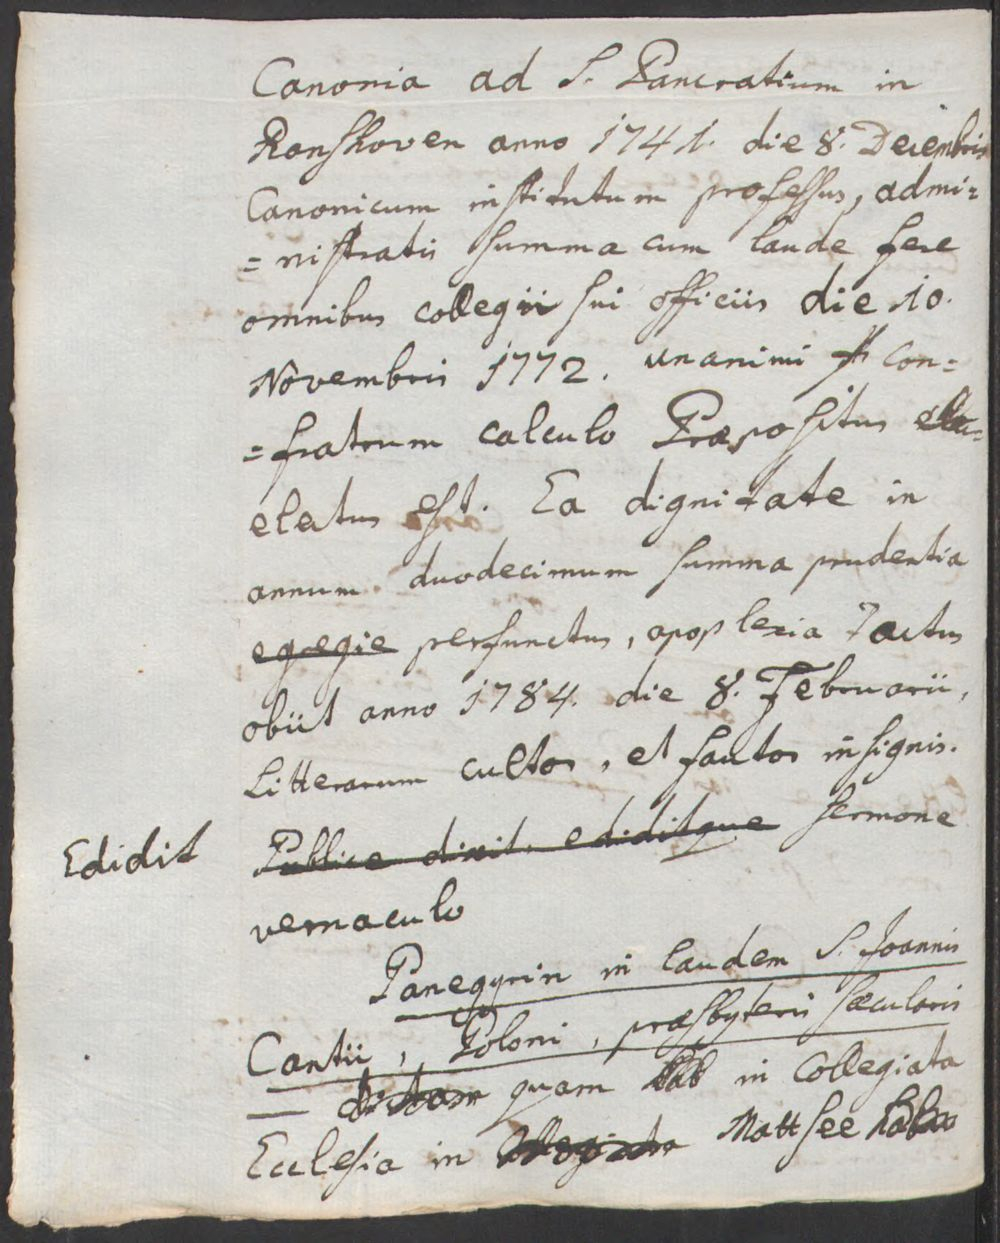 Canonia ad S. Pancratium in
Ranshoven anno 1741. die 8. Decembris
Canonicum institutum professus, admi=
=nistratis summa cum laude fere
omnibus collegii sui officiis die 10.
Novembris 1772. unanimi con=
=fratrum calculo Præpositus
electus est. Ea dignitate in
annum duodecimum summa prudentia
egregie perfunctus, apoplexia tactus
obiit anno 1784. die 8. Februarii,
Litterarum cultor, et fautor insignis.
Edidit Publice dixit, ediditque sermone
vernaculo
Panegyrin in laudem S. Joannis
Cantii, Poloni, præsbyteri sæcularis
— dictam quam in Collegiata
Ecclesia in Collegiata Mattsee